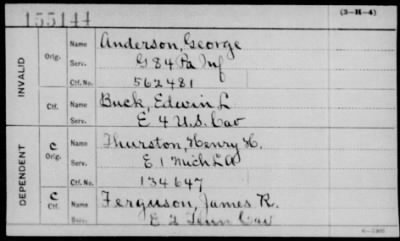 155144 (3-H-4)
INVALID
Orig. Name Anderson, George
Serv. G 84 Pa Inf
Ctf. No. 562481
Ctf. Name Buck, Edwin L
Serv. E 4 U.S. Cav
DEPENDENT
C Orig. Name Thurston, Henry H.
Serv. E 1 Mich L A
Ctf. No. 134647
C Ctf. Name Ferguson, James R.
Serv. E 2 Tenn Cav